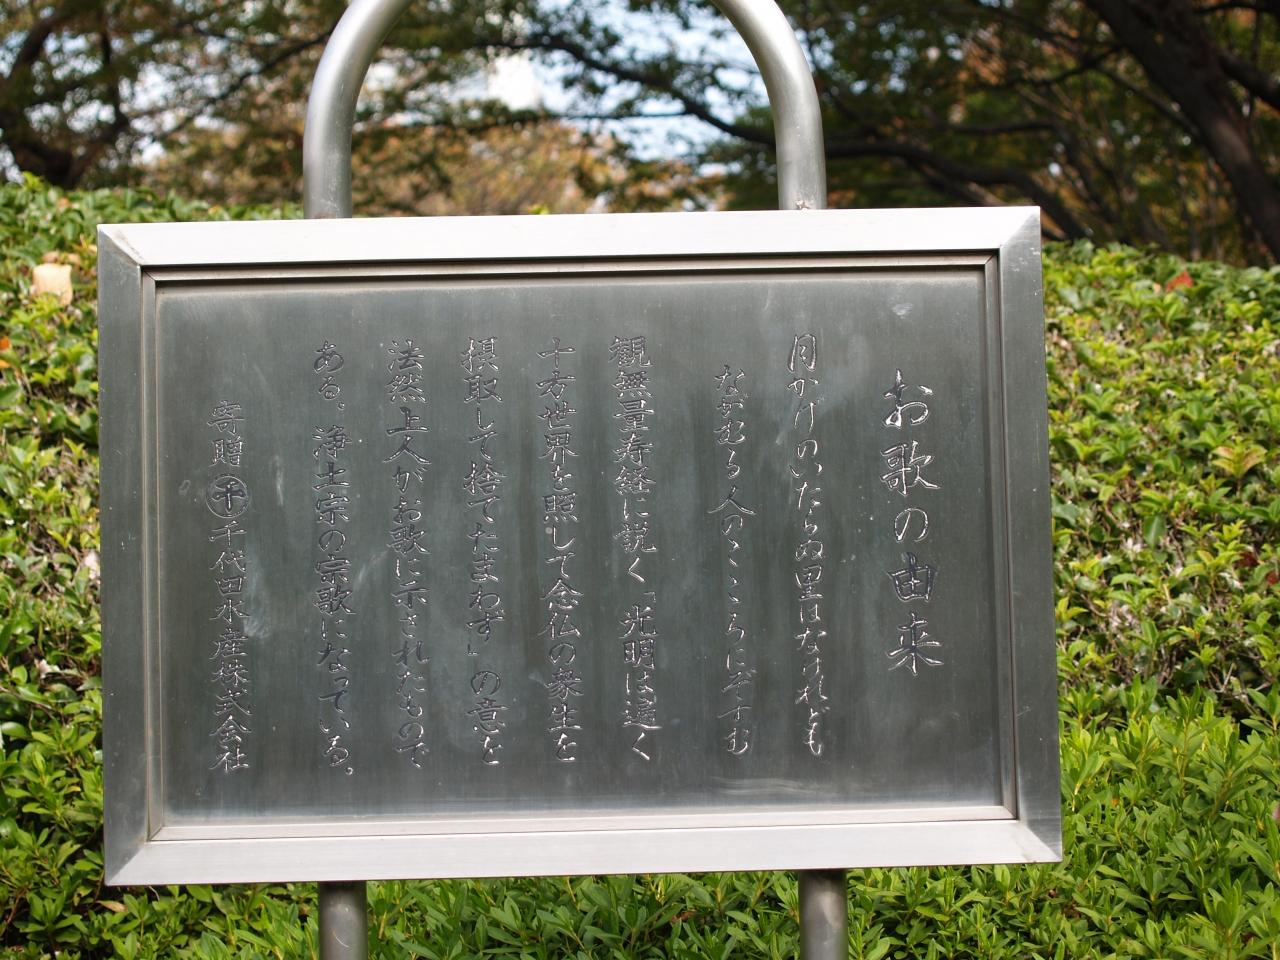 お歌の由来
月かげのいたらぬ里はなけれども
ながむる人のこころにぞすむ
観無量寿経に説く「光明は遍く
十方世界を照して念仏の衆生を
摂取して捨てたまわず」の意を
法然上人がお歌に示されたもので
ある。浄土宗の宗歌になっている。
寄贈 千 千代田水産株式会社